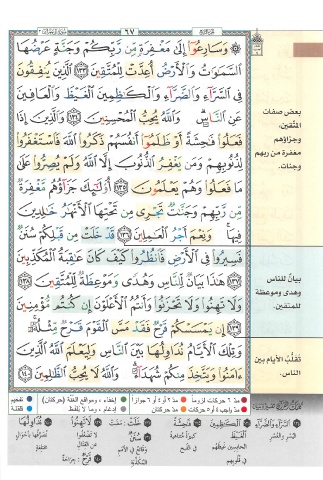 سورة آل عمران ٣
٦٧
الجزء الرابع
۞ وَسَارِعُوٓا۟ إِلَىٰ مَغْفِرَةٍ مِّن رَّبِّكُمْ وَجَنَّةٍ عَرْضُهَا
ٱلسَّمَٰوَٰتُ وَٱلْأَرْضُ أُعِدَّتْ لِلْمُتَّقِينَ ١٣٣ ٱلَّذِينَ يُنفِقُونَ
فِى ٱلسَّرَّآءِ وَٱلضَّرَّآءِ وَٱلْكَٰظِمِينَ ٱلْغَيْظَ وَٱلْعَافِينَ
عَنِ ٱلنَّاسِ ۗ وَٱللَّهُ يُحِبُّ ٱلْمُحْسِنِينَ ١٣٤ وَٱلَّذِينَ إِذَا
فَعَلُوا۟ فَٰحِشَةً أَوْ ظَلَمُوٓا۟ أَنفُسَهُمْ ذَكَرُوا۟ ٱللَّهَ فَٱسْتَغْفَرُوا۟
لِذُنُوبِهِمْ وَمَن يَغْفِرُ ٱلذُّنُوبَ إِلَّا ٱللَّهُ وَلَمْ يُصِرُّوا۟ عَلَىٰ
مَا فَعَلُوا۟ وَهُمْ يَعْلَمُونَ ١٣٥ أُو۟لَٰٓئِكَ جَزَآؤُهُم مَّغْفِرَةٌ
مِّن رَّبِّهِمْ وَجَنَّٰتٌ تَجْرِى مِن تَحْتِهَا ٱلْأَنْهَٰرُ خَٰلِدِينَ
فِيهَا ۚ وَنِعْمَ أَجْرُ ٱلْعَٰمِلِينَ ١٣٦ قَدْ خَلَتْ مِن قَبْلِكُمْ سُنَنٌ
فَسِيرُوا۟ فِى ٱلْأَرْضِ فَٱنظُرُوا۟ كَيْفَ كَانَ عَٰقِبَةُ ٱلْمُكَذِّبِينَ
١٣٧ هَٰذَا بَيَانٌ لِّلنَّاسِ وَهُدًى وَمَوْعِظَةٌ لِّلْمُتَّقِينَ ١٣٨
وَلَا تَهِنُوا۟ وَلَا تَحْزَنُوا۟ وَأَنتُمُ ٱلْأَعْلَوْنَ إِن كُنتُم مُّؤْمِنِينَ
١٣٩ إِن يَمْسَسْكُمْ قَرْحٌ فَقَدْ مَسَّ ٱلْقَوْمَ قَرْحٌ مِّثْلُهُۥ ۚ
وَتِلْكَ ٱلْأَيَّامُ نُدَاوِلُهَا بَيْنَ ٱلنَّاسِ وَلِيَعْلَمَ ٱللَّهُ ٱلَّذِينَ
ءَامَنُوا۟ وَيَتَّخِذَ مِنكُمْ شُهَدَآءَ ۗ وَٱللَّهُ لَا يُحِبُّ ٱلظَّٰلِمِينَ ١٤٠
بعض صفات
المتّقين،
وجزاؤهم
مغفرة من ربهم
وجنات.
بيانٌ للناس
وهدى وموعظة
للمتقين.
تقلّبُ الأيام بين
الناس.
مدّ ٦ حركات لزوماً
مدّ ٢ أو ٤ أو ٦ جوازاً
إخفاء، ومواقع الغنّة (حركتان)
تفخيم
مدّ واجب ٤ أو ٥ حركات
مدّ حركتان
إدغام، وما لا يُلفظ
قلقلة
السَّرَّاءِ وَالضَّرَّاءِ
اليُسر والعُسر
الْكَاظِمِينَ
الْغَيْظَ
الحابسين غيظهم
في قلوبهم
فَاحِشَةً
خَلَتْ
مضت
لَا تَهِنُوا
لا تضعفوا
قَرْحٌ
جراحة
نُدَاوِلُهَا